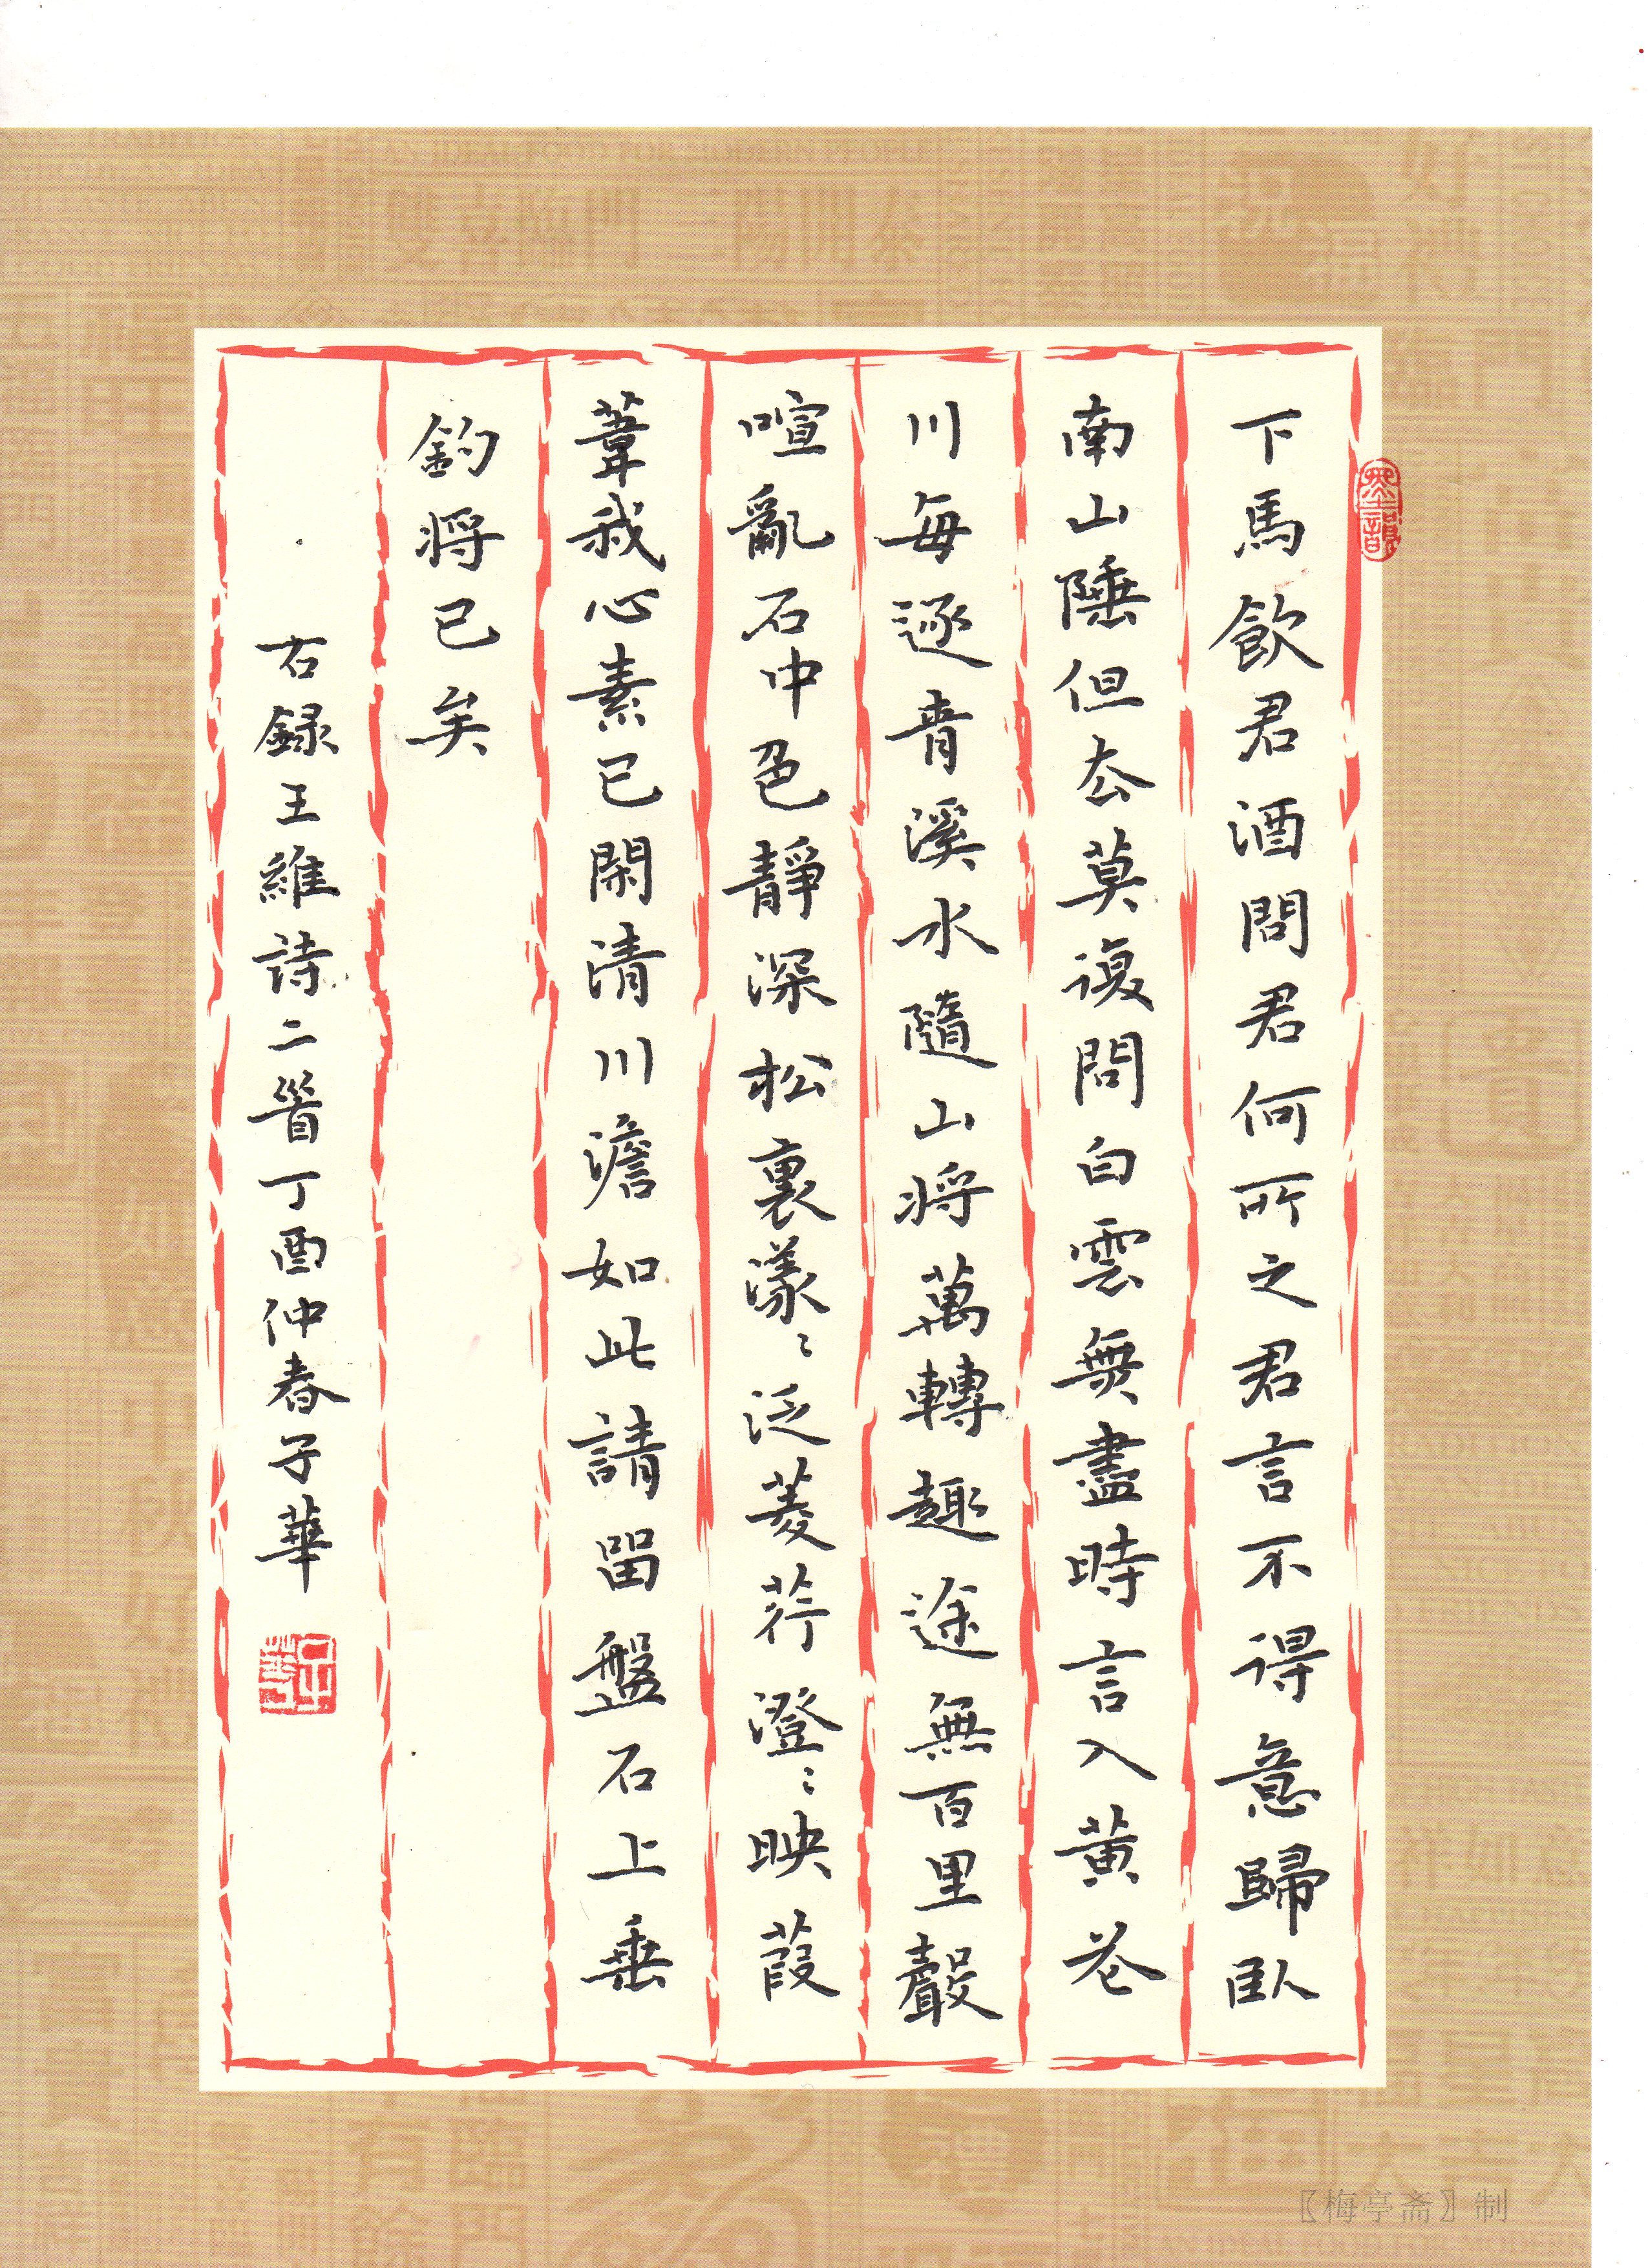 下馬飲君酒問君何所之君言不得意歸臥
南山陲但去莫復問白雲無盡時言入黃花
川每逐青溪水隨山將萬轉趣途無百里聲
喧亂石中色靜深松裏漾〻泛菱荇澄〻映葭
葦我心素已閑清川澹如此請留盤石上垂
釣將已矣
右錄王維詩二首丁酉仲春子華
墨韻
〖梅亭斋〗制